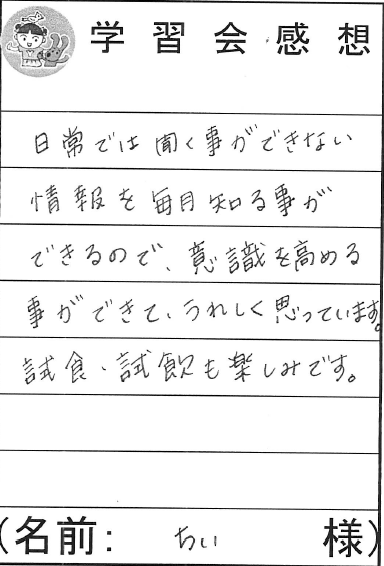 学習会感想
日常では聞く事ができない
情報を毎月知る事が
できるので、意識を高める
事ができて、うれしく思っています。
試食、試飲も楽しみです。
(名前: ちい 様)